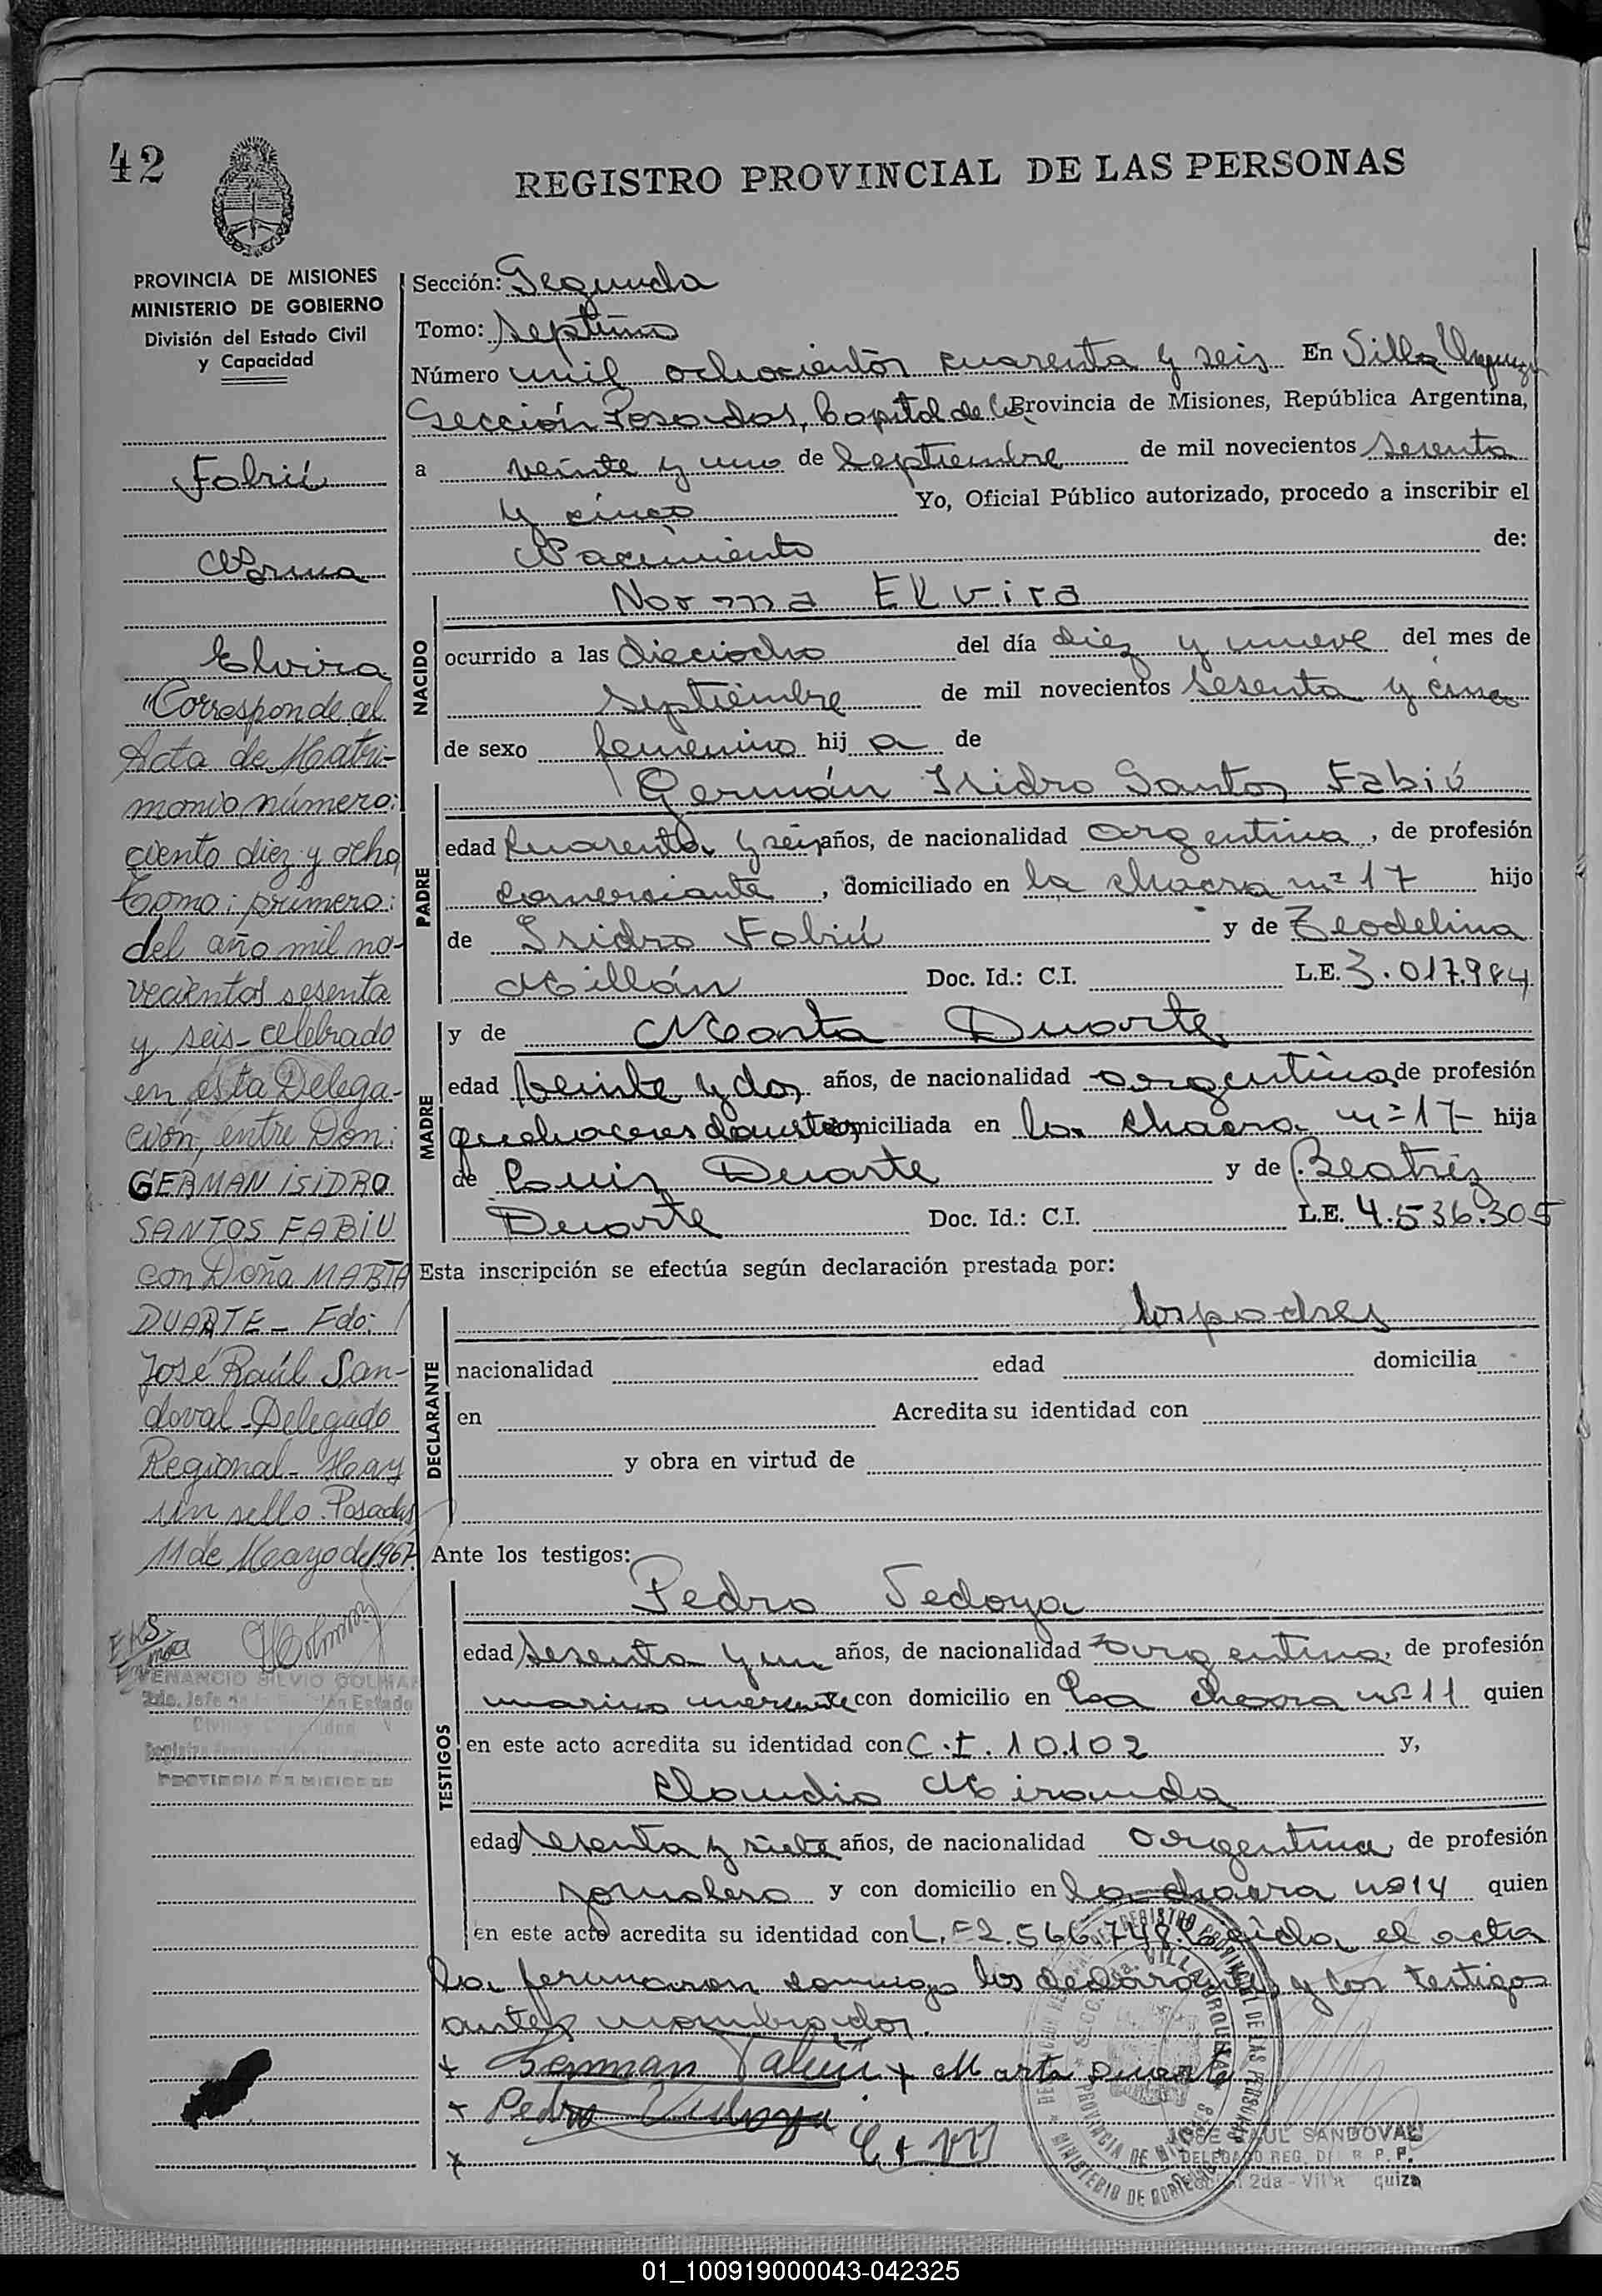 42
REGISTRO PROVINCIAL DE LAS PERSONAS
PROVINCIA DE MISIONES
MINISTERIO DE GOBIERNO
División del Estado Civil
y Capacidad
Fabiú
Norma
Elvira
"Corresponde al
Acta de Matri-
monio número:
ciento diez y ocho
Tomo: primero:
del año mil no-
vecientos sesenta
y seis - celebrado
en ésta Delega-
ción, entre Don:
GERMAN ISIDRO
SANTOS FABIU
con Doña MARTA
DUARTE - Fdo:
José Raúl San-
doval - Delegado
Regional - Hay
un sello. Posadas
11 de Mayo de 1967.
VENANCIO SILVIO GOLMAR
2do. Jefe de la División Estado
Civil y Capacidad
PROVINCIA DE MISIONES
Sección: Segunda
Tomo: Septimo
Número mil ochocientos cuarenta y seis En Villa Urquiza
Sección Posadas, Capital de la Provincia de Misiones, República Argentina,
a veinte y uno de Septiembre de mil novecientos sesenta
y cinco Yo, Oficial Público autorizado, procedo a inscribir el
Nacimiento de:
NACIDO
Norma Elvira
ocurrido a las dieciocho del día diez y nueve del mes de
septiembre de mil novecientos sesenta y cinco
de sexo femenino hij a de
PADRE
Germán Isidro Santos Fabiú
edad cuarenta y seis años, de nacionalidad argentina, de profesión
comerciante, domiciliado en la chacra nº 17 hijo
de Isidro Fabiú y de Teodelina
Millán Doc. Id.: C.I. L.E. 3.017.984
MADRE
y de Marta Duarte
edad veinte y dos años, de nacionalidad argentina de profesión
quehaceres domesticos domiciliada en la chacra nº 17 hija
de Luis Duarte y de Beatriz
Duarte Doc. Id.: C.I. L.E. 4.536.305
Esta inscripción se efectúa según declaración prestada por:
DECLARANTE
los padres
nacionalidad edad domicilia
en Acredita su identidad con
y obra en virtud de
Ante los testigos:
TESTIGOS
Pedro Vedoya
edad sesenta y un años, de nacionalidad argentina, de profesión
marino mercante con domicilio en la chacra nº 11 quien
en este acto acredita su identidad con C.I. 10.102 y,
Claudio Miranda
edad sesenta y siete años, de nacionalidad argentina, de profesión
jornalero y con domicilio en la chacra nº 14 quien
en este acto acredita su identidad con L.E 2.566.748. Leída el acta
la firmaron conmigo los declarantes y los testigos
antes nombrados.
+ German Fabiu + Marta Duarte
+ Pedro Vedoya
+
JOSE RAUL SANDOVAL
DELEGADO REG. DEL R. P. P.
01_100919000043-042325